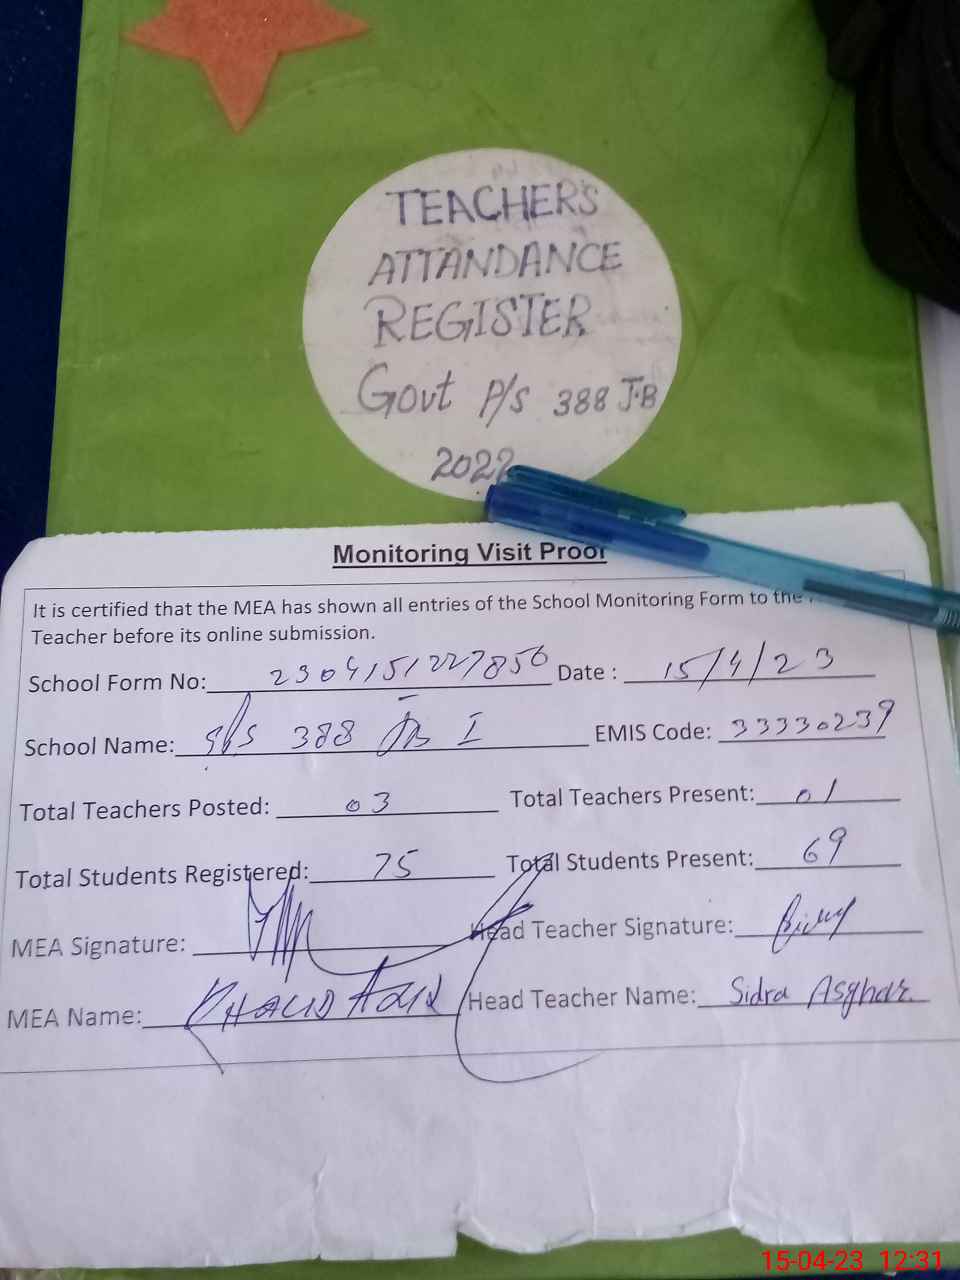 TEACHERS
ATTANDANCE
REGISTER
Govt P/S 388 J.B
2022
Monitoring Visit Proof
It is certified that the MEA has shown all entries of the School Monitoring Form to the
Teacher before its online submission.
School Form No: 2304151227856 Date : 15/4/23
School Name: 388 JB I EMIS Code: 33330239
Total Teachers Posted: 03 Total Teachers Present: 01
Total Students Registered: 75 Total Students Present: 69
MEA Signature: Head Teacher Signature:
MEA Name: KHALID AZIZ Head Teacher Name: Sidra Asghar
15-04-23 12:31